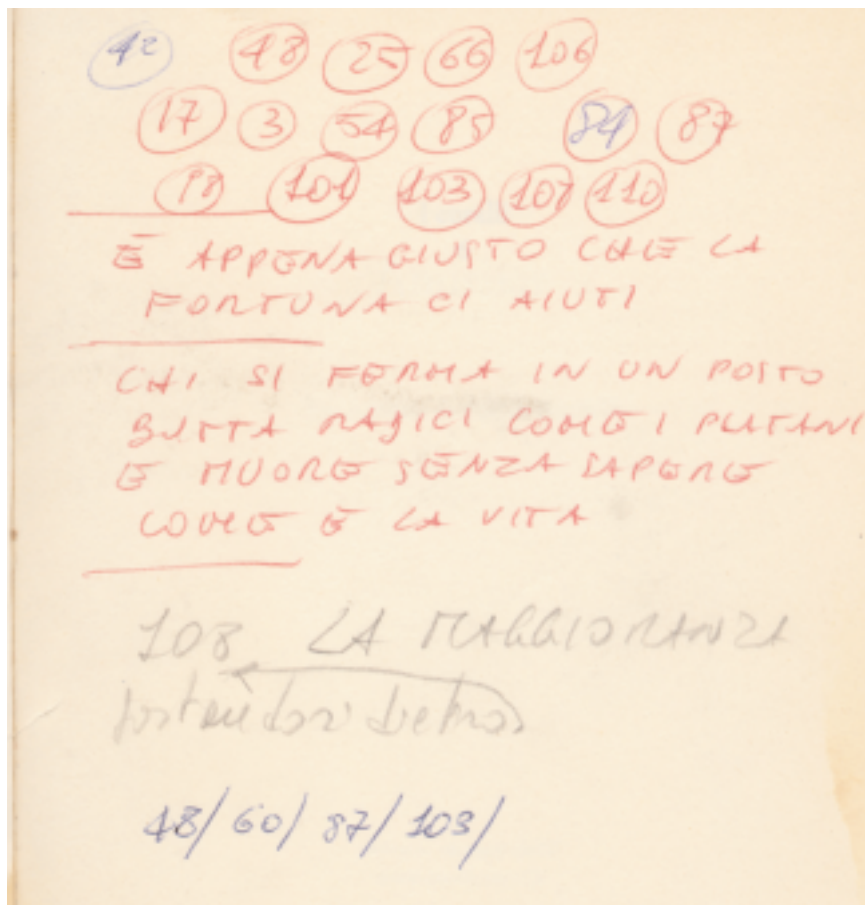 42 48 25 66 106
17 3 54 85 84 87
98 101 103 107 110
È APPENA GIUSTO CHE LA
FORTUNA CI AIUTI
CHI SI FERMA IN UN POSTO
BUTTA RADICI COME I PLATANI
E MUORE SENZA SAPERE
COME È LA VITA
108 LA MAGGIORANZA
dietro
48/60/87/103/